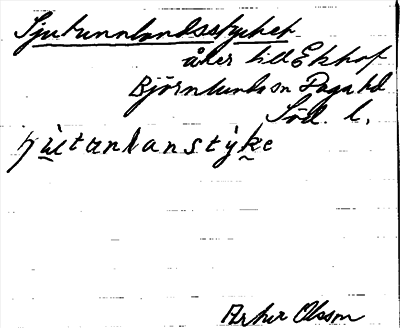 Sjutunnlandsstycket
åker till Ekhof
Björnlunda sn Daga hd
Söd. l.
ʃùtanlanstỳke
Artur Olsson